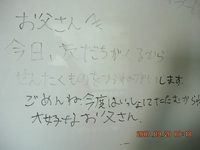 お父さんへ
今日、友だちがくるから
せんたくものをよろしくおねがいします。
ごめんね今度はいっしょにてたたむから
大好きなお父さん。